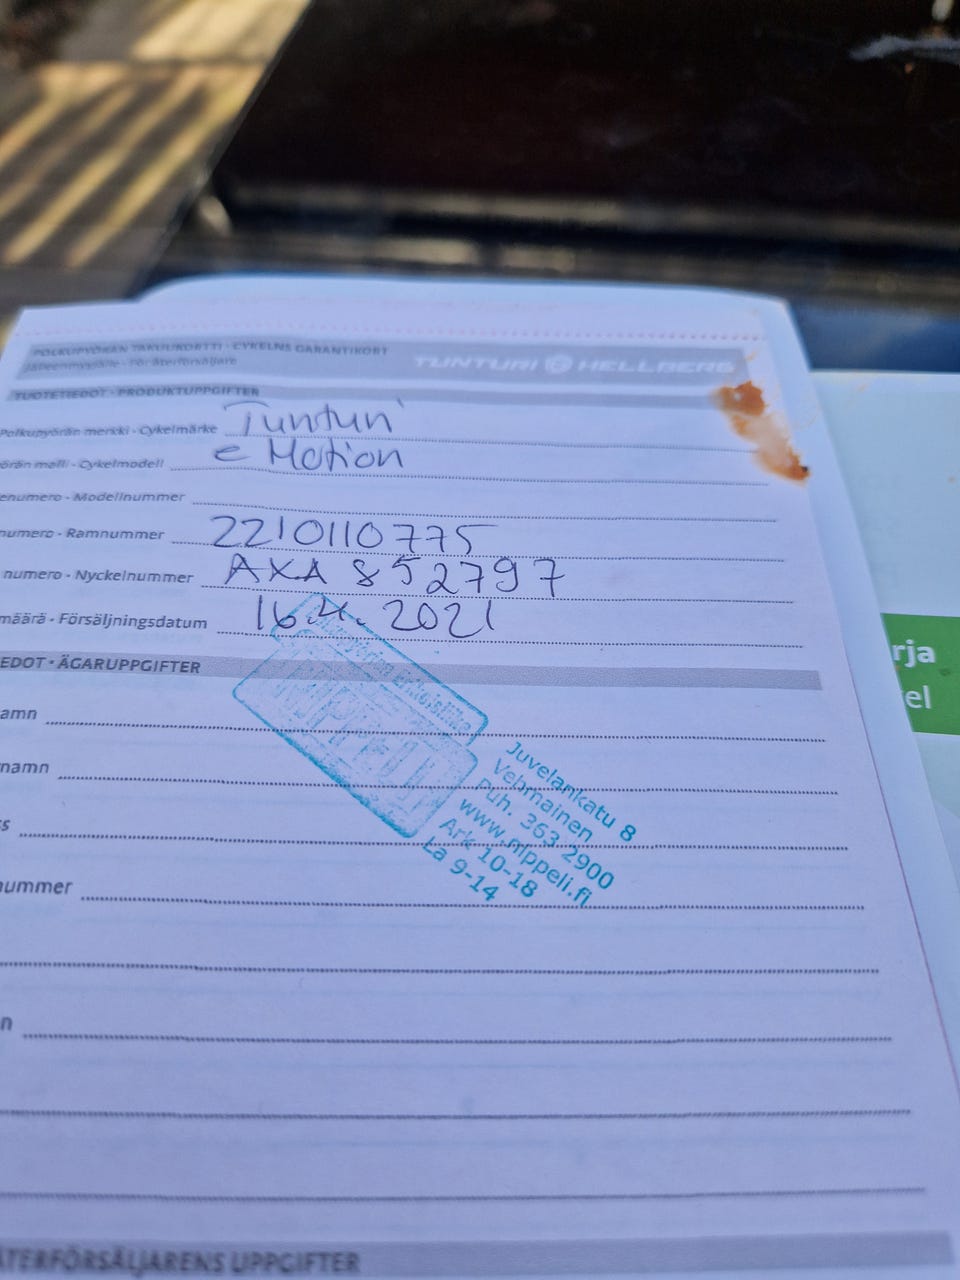 POLKUPYÖRÄN TAKUUKORTTI · CYKELNS GARANTIKORT
Jälleenmyyjälle · För återförsäljare
TUNTURI HELLBERG
TUOTETIEDOT · PRODUKTUPPGIFTER
Polkupyörän merkki · Cykelmärke Tunturi
örän malli · Cykelmodell e Motion
enumero · Modellnummer
numero · Ramnummer 2210110775
numero · Nyckelnummer AXA 852797
määrä · Försäljningsdatum 16.4. 2021
EDOT · ÄGARUPPGIFTER
amn
namn
ss
nummer
n
Polkupyörän erikoisliike
NIPPELI
Juvelankatu 8
Vehmainen
puh. 363 2900
www.nippeli.fi
Ark 10-18
La 9-14
ÅTERFÖRSÄLJARENS UPPGIFTER
rja
el